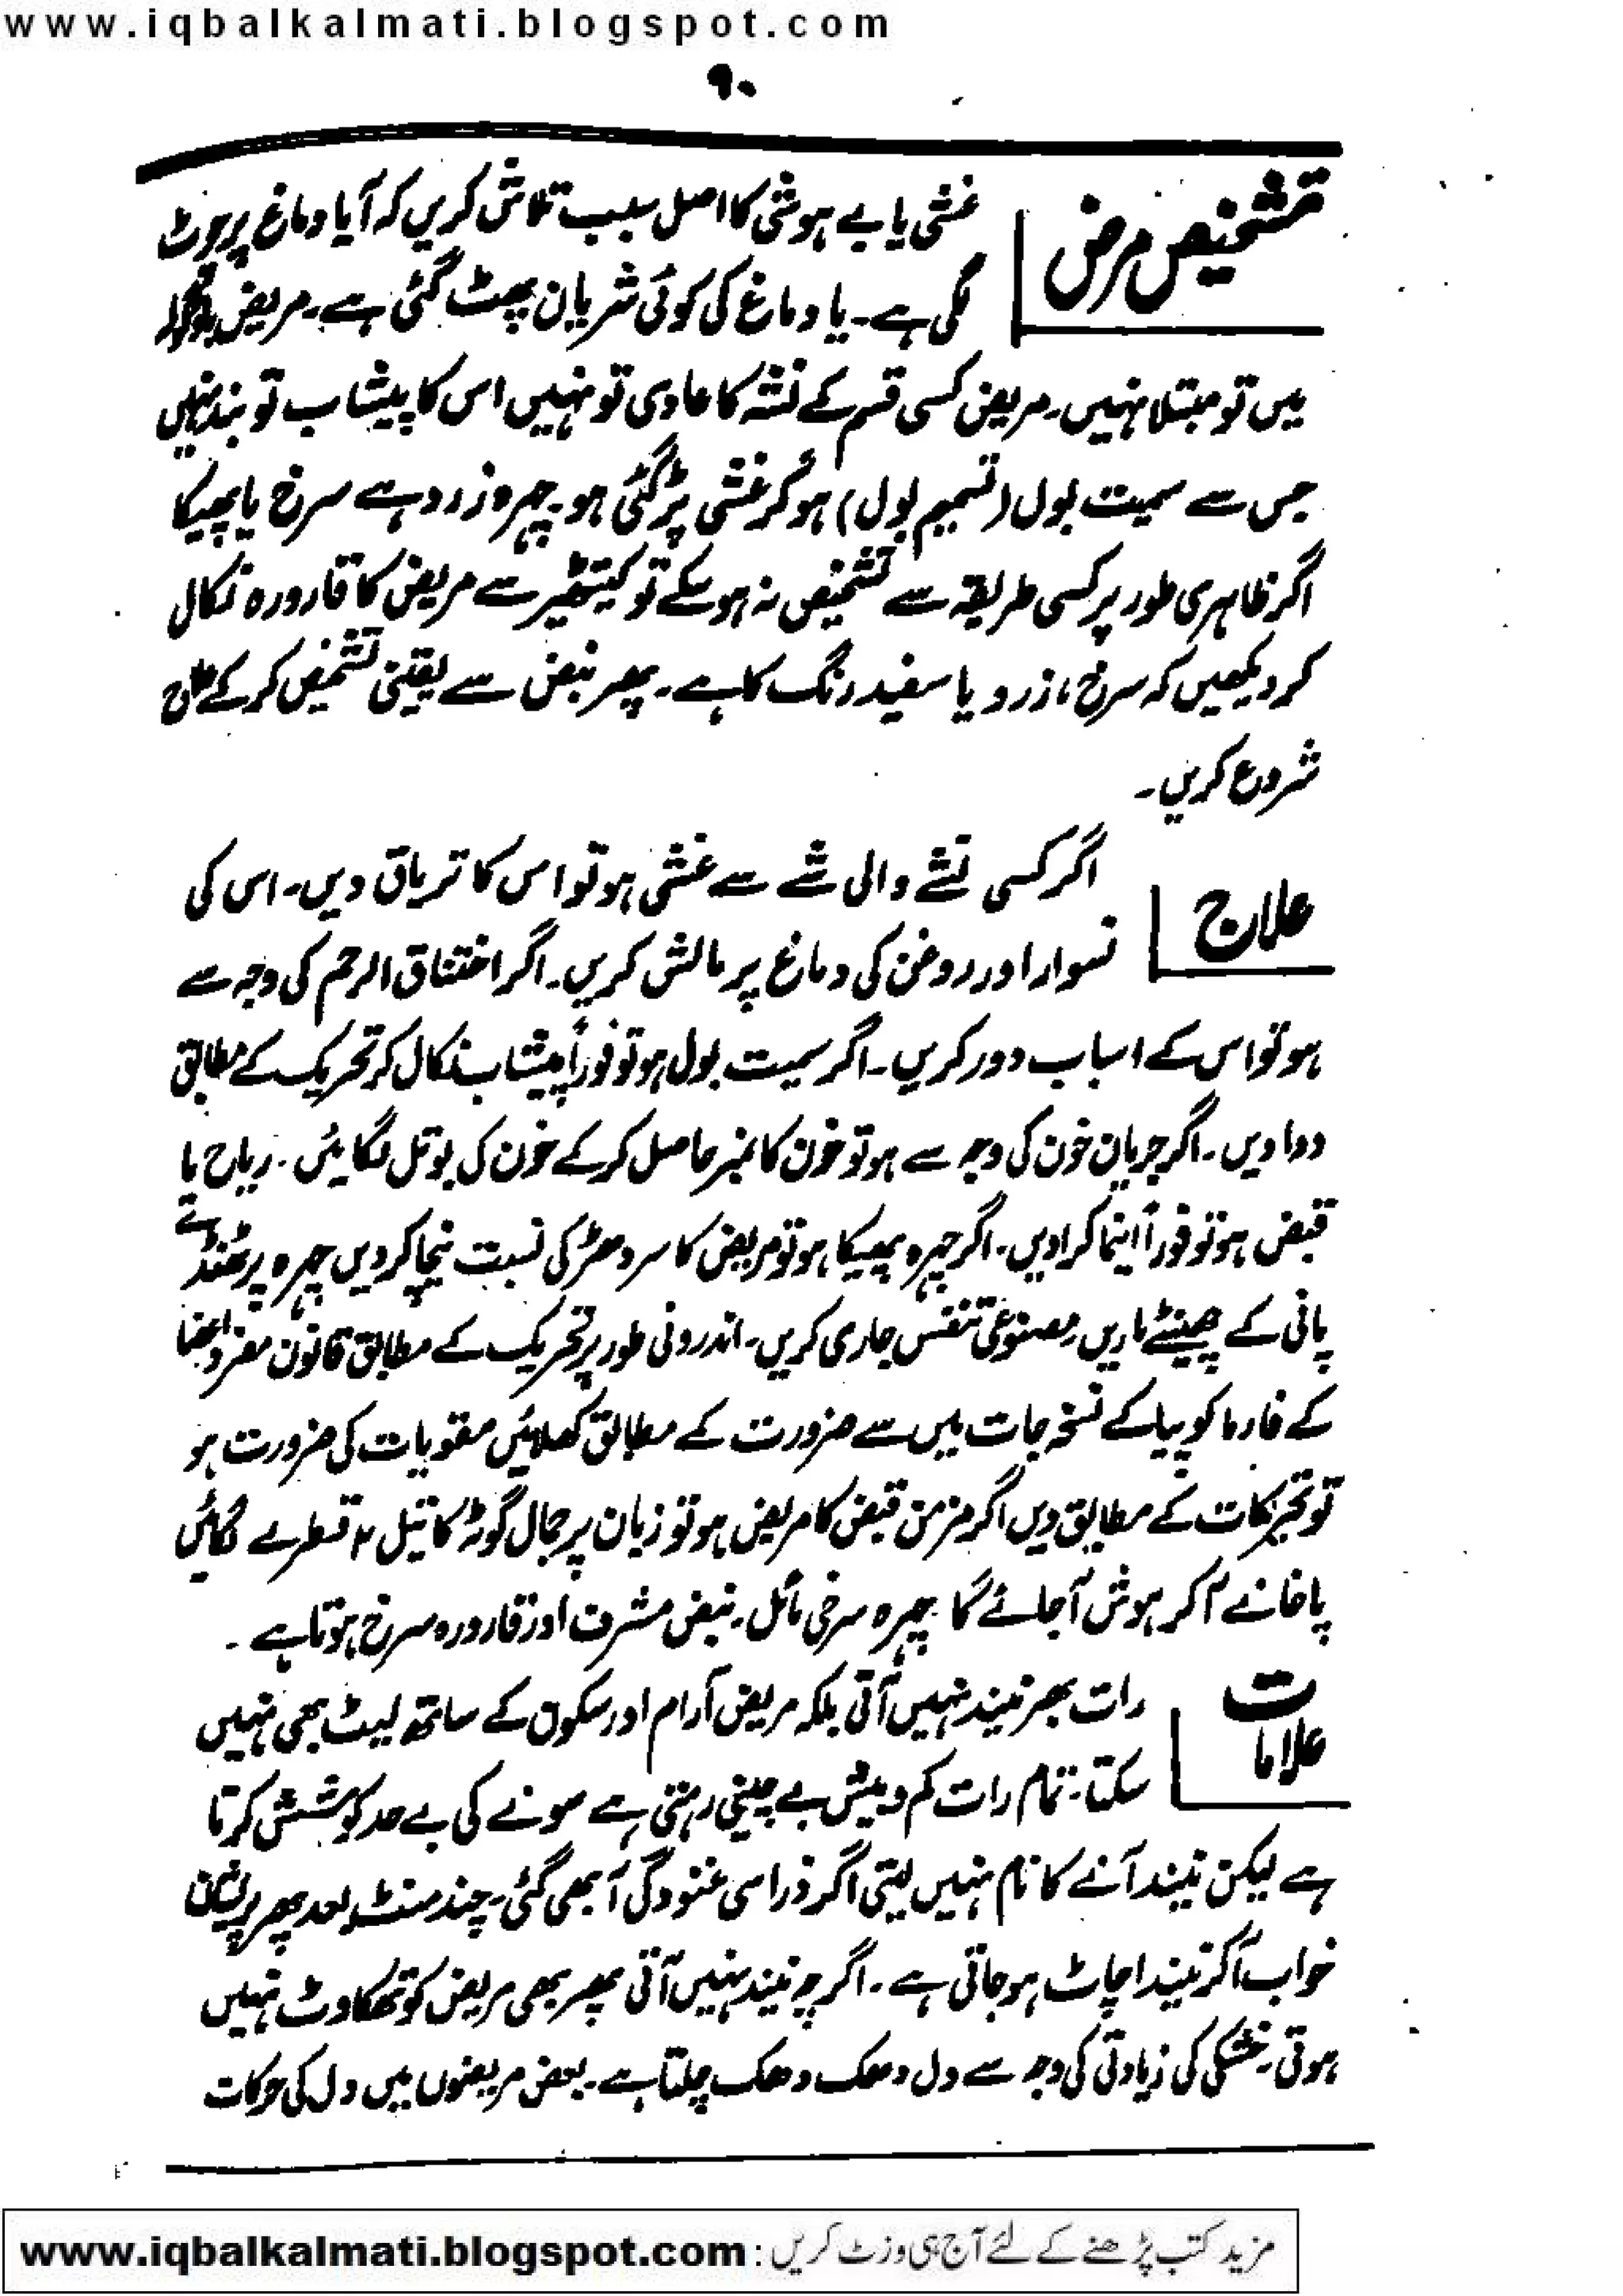 www.iqbalkalmati.blogspot.com
۹۰
تشخیص مرض
غشی یا بے ہوشی کا اصل سبب تلاش کریں کہ آیا دماغ پر چوٹ
لگی ہے۔ یا دماغ کی کوئی شریان پھٹ گئی ہے۔ مریض
میں تو مبتلا نہیں۔ مریض کسی قسم کے نشہ کا عادی تو نہیں اس کا پیشاب تو بند نہیں
جس سے سمیت بول (تسمیم بول) ہو کر غشی پڑ گئی ہو۔ چہرہ زرد ہے سرخ یا پھیکا
اگر ظاہری طور پر کسی طریقہ سے تشخیص نہ ہو سکے تو کیتھیٹر سے مریض کا قارورہ نکال
کر دیکھیں کہ سرخ، زرد یا سفید رنگ کا ہے۔ پھر نبض سے یقینی تشخیص کر کے علاج
شروع کریں۔
علاج
اگر کسی نشے والی شے سے غشی ہو تو اس کا تریاق دیں۔ اس کی
نسوار اور روغن کی دماغ پر مالش کریں۔ اگر اختناق الرحم کی وجہ سے
ہو تو اس کے اسباب دور کریں۔ اگر سمیت بول ہو تو فوراً پیشاب نکال کر تحریک کے مطابق
دوا دیں۔ اگر جریان خون کی وجہ سے ہو تو خون کا نمبر حاصل کر کے خون کی بوتل لگائیں۔ ریاح یا
قبض ہو تو فوراً انیما کرا دیں۔ اگر چہرہ پھیکا ہو تو مریض کا سر دھڑ کی نسبت نیچا کر دیں چہرہ پر ٹھنڈے
پانی کے چھینٹے ماریں مصنوعی تنفس جاری کریں۔ اندرونی طور پر تحریک کے مطابق قانون مفرد اعضا
کے فارما کوپیا کے نسخہ جات میں سے ضرورت کے مطابق کھلائیں مقویات کی ضرورت ہو
تو تحریکات کے مطابق دیں اگر مزمن قبض کا مریض ہو تو زبان پر جمال گوٹہ کا تیل ۲ قطرے لگائیں
پاخانے آ کر ہوش آ جائے گا چہرہ سرخی مائل۔ نبض مشرف اور قارورہ سرخ ہوتا ہے۔
علامات
رات بھر نیند نہیں آتی بلکہ مریض آرام اور سکون کے ساتھ لیٹ بھی نہیں
سکتا۔ تمام رات کم و بیش بے چینی رہتی ہے سونے کی بے حد کوشش کرتا
ہے لیکن نیند آنے کا نام نہیں لیتی اگر ذرا سی غنودگی آ بھی گئی۔ چند منٹ بعد پھر پریشان
خواب آ کر نیند اچاٹ ہو جاتی ہے۔ اگرچہ نیند نہیں آتی پھر بھی مریض کو تھکاوٹ نہیں
ہوتی۔ خشکی کی زیادتی کی وجہ سے دل دھک دھک چلتا ہے۔ بعض مریضوں میں دل کی حرکات
مزید کتب پڑھنے کے لئے آج ہی وزٹ کریں : www.iqbalkalmati.blogspot.com